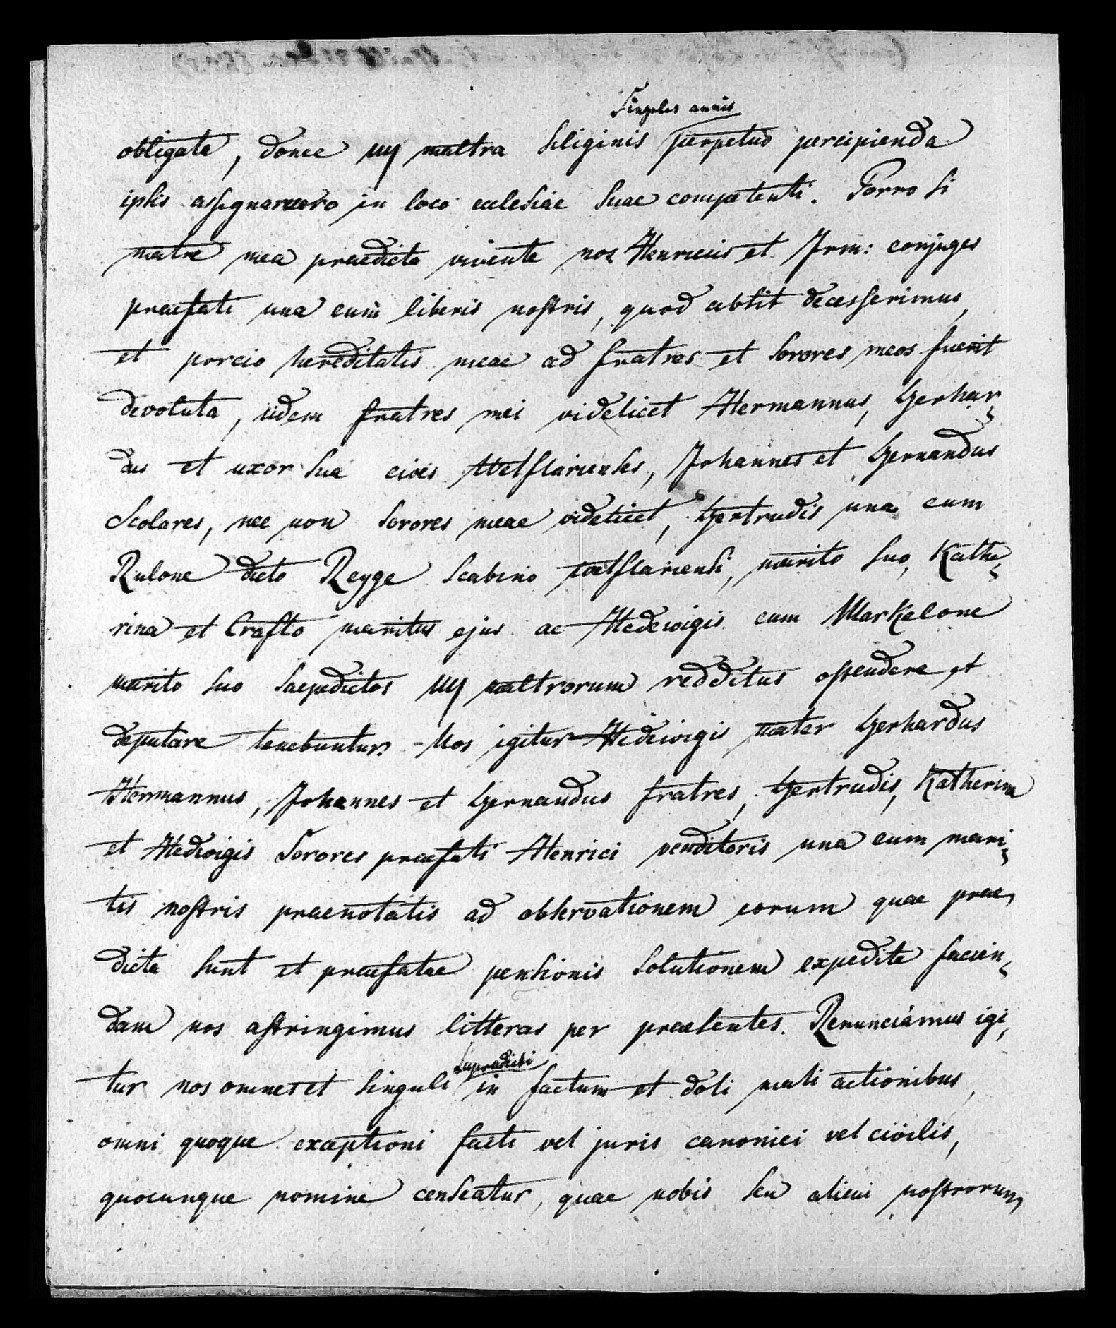 Singulis annis
obligata, donec IIIJ maltra siliginis perpetuo percipienda
ipsis assignavero in loco ecclesiae suae competenti. Porro si
matre mea praedicta vivente nos Henricus et Irm: conjuges
praefati una cum liberis nostris, quod absit decesserimus,
et porcio hereditatis meae ad fratres et sorores meos fuerit
devoluta, iidem fratres mei videlicet Hermannus, Gerhar-
dus et uxor sua cives Wetflarienses, Johannes et Gernandus
Scolares, nec non sorores meae videlicet, Gertrudis una cum
Rulone dicto Reyge scabino wetflariensi, marito suo, Kathe-
rina et Crafto maritus ejus ac Hedewigis cum Markelone
marito suo saepedictos IIIJ maltrorum redditus ostendere et
deputare tenebuntur. Nos igitur Hedewigis mater Gerhardus
Hermannus, Johannes et Gernandus fratres, Gertrudis, Katherina
et Hedwigis sorores praefati Henrici venditoris una cum mari-
tis nostris praenotatis ad observationem eorum quae prae-
dicta sunt et praefatae pensionis solutionem expedite facien-
dam nos astringimus litteras per praesentes. Renunciamus igi-
tur nos omnes et singuli supradicti in factum et doli mali actionibus,
omni quoque exceptioni facti vel juris canonici vel civilis,
quocunque nomine censeatur, quae nobis seu alicui nostrorum